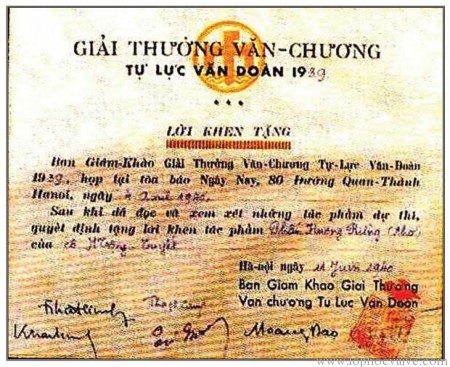 GIẢI THƯỞNG VĂN-CHƯƠNG
TỰ LỰC VĂN ĐOÀN 1939
LỜI KHEN TẶNG
Ban Giám-Khảo Giải Thưởng Văn-Chương Tự-Lực Văn-Đoàn
1939, họp tại tòa báo Ngày Nay, 80 Đường Quan-Thánh
Hanoi, ngày 1940.
Sau khi đã đọc và xem xét những tác phẩm dự thi,
quyết định tặng lời khen tác phẩm Phấn Hương Rừng (thơ)
của cô Mộng-Tuyết
Hà-nội ngày 11 Juin 1940
Ban Giám Khảo Giải Thưởng
Văn chương Tự Lực Văn Đoàn
Khaihung
Hoang Dao